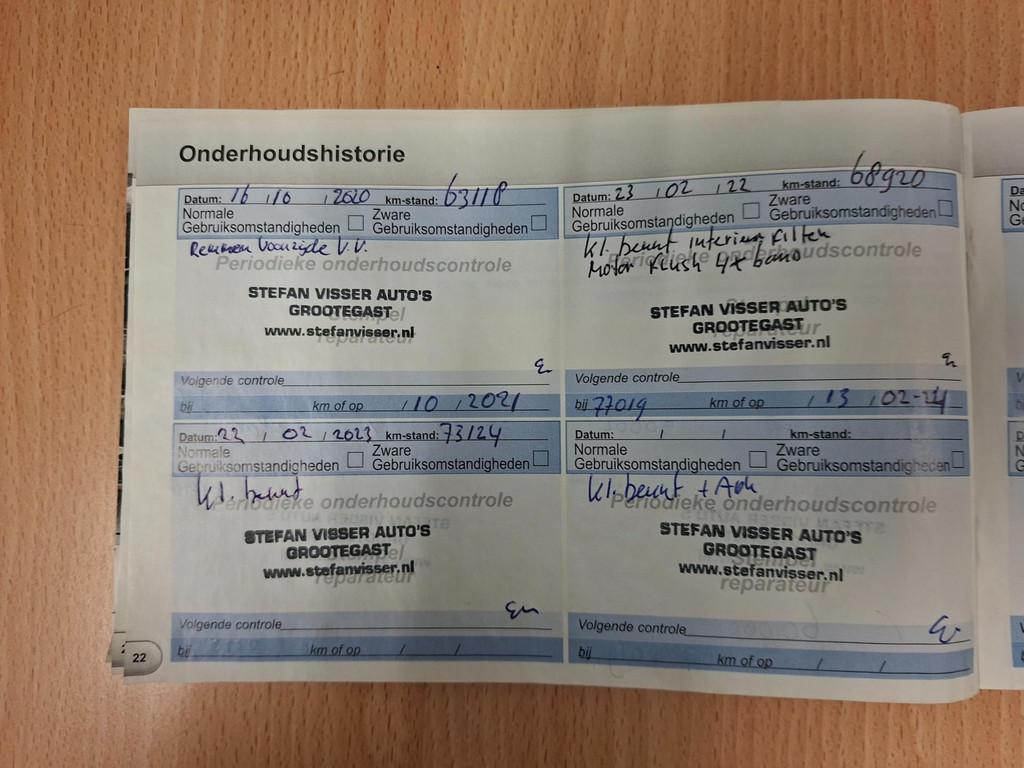 Onderhoudshistorie
Datum: 16 / 10 / 2020 km-stand: 63118
Normale Gebruiksomstandigheden Zware Gebruiksomstandigheden
Remmen Voorzijde V.V.
Periodieke onderhoudscontrole
STEFAN VISSER AUTO'S
GROOTEGAST
Stempel
www.stefanvisser.nl
reparateur
Volgende controle
bij km of op / 10 / 2021
Datum: 23 / 02 / 22 km-stand: 68920
Normale Gebruiksomstandigheden Zware Gebruiksomstandigheden
Kl. beurt interieur filter
Motor Flush 4x band
Periodieke onderhoudscontrole
STEFAN VISSER AUTO'S
GROOTEGAST
Stempel
www.stefanvisser.nl
reparateur
Volgende controle
bij 77019 km of op / 13 / 02-24
Datum: 22 / 02 / 2023 km-stand: 73124
Normale Gebruiksomstandigheden Zware Gebruiksomstandigheden
Kl. beurt
Periodieke onderhoudscontrole
STEFAN VISSER AUTO'S
GROOTEGAST
Stempel
www.stefanvisser.nl
reparateur
Volgende controle
bij km of op / /
Datum: / / km-stand:
Normale Gebruiksomstandigheden Zware Gebruiksomstandigheden
Kl. beurt +
Periodieke onderhoudscontrole
STEFAN VISSER AUTO'S
GROOTEGAST
Stempel
www.stefanvisser.nl
reparateur
Volgende controle
bij km of op / /
22